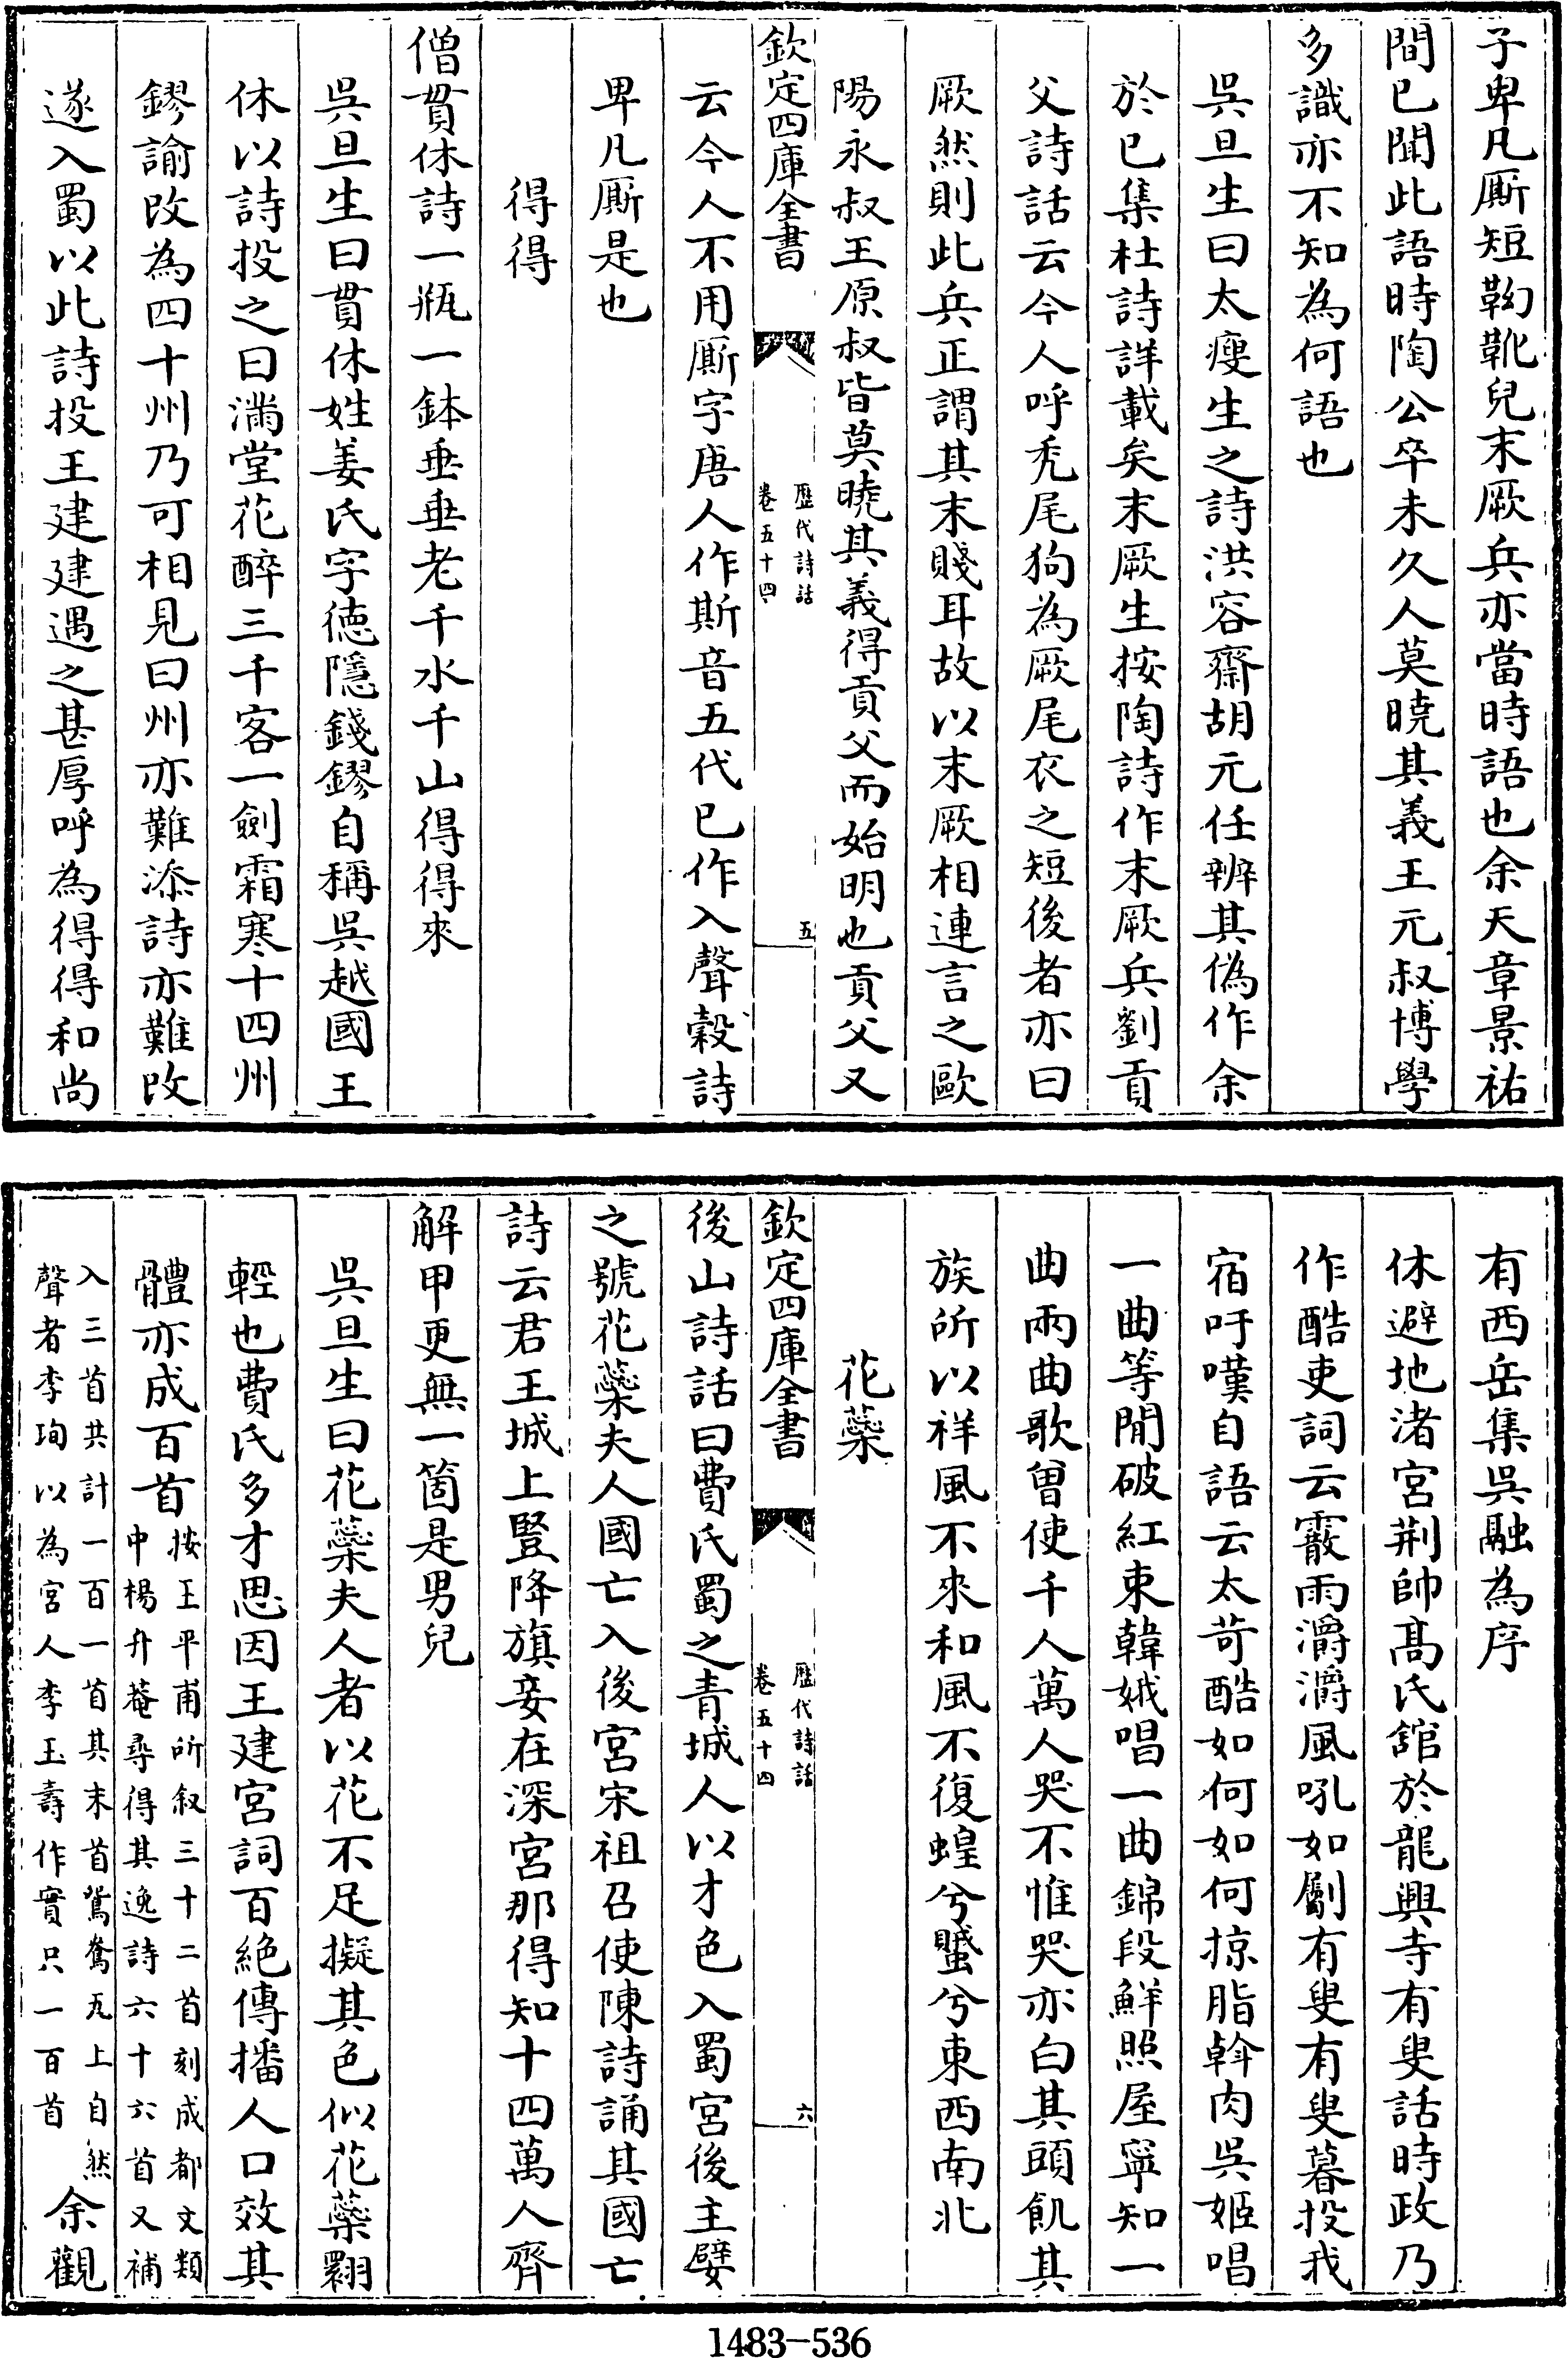 子卑凡厮短靿靴兒末厥兵亦當時語也余天章景祐
間已聞此語時陶公卒未久人莫曉其義王元叔博學
多識亦不知為何語也
吳旦生曰太瘦生之詩洪容齋胡元任辨其偽作余
於已集杜詩詳載矣末厥生按陶詩作末厥兵劉貢
父詩話云今人呼秃尾狗為厥尾衣之短後者亦曰
厥然則此兵正謂其末賤耳故以末厥相連言之歐
陽永叔王原叔皆莫曉其義得貢父而始明也貢父又
欽定四庫全書
歷代詩話
卷五十四
五
云今人不用厮字唐人作斯音五代已作入聲穀詩
卑凡厮是也
得得
僧貫休詩一瓶一鉢垂垂老千水千山得得來
吳旦生曰貫休姓姜氏字德隱錢鏐自稱吳越國王
休以詩投之曰滿堂花醉三千客一劍霜寒十四州
鏐諭改為四十州乃可相見曰州亦難添詩亦難改
遂入蜀以此詩投王建建遇之甚厚呼為得得和尚
有西岳集吳融為序
休避地渚宮荆帥髙氏舘於龍興寺有叟話時政乃
作酷吏詞云霰雨灂灂風吼如劚有叟有叟暮投我
宿吁嘆自語云太苛酷如何如何掠脂斡肉吳姬唱
一曲等閒破紅束韓娥唱一曲錦段鮮照屋寧知一
曲兩曲歌曾使千人萬人哭不惟哭亦白其頭飢其
族所以祥風不來和風不復蝗兮蠈兮東西南北
花蘂
欽定四庫全書
歷代詩話
卷五十四
六
後山詩話曰費氏蜀之青城人以才色入蜀宮後主嬖
之號花蘂夫人國亡入後宮宋祖召使陳詩誦其國亡
詩云君王城上豎降旗妾在深宮那得知十四萬人齊
解甲更無一箇是男兒
吳旦生曰花蘂夫人者以花不足擬其色似花蘂翾
輕也費氏多才思因王建宮詞百絶傳播人口效其
體亦成百首按王平甫所叙三十二首刻成都文類
中楊升菴尋得其逸詩六十六首又補
入三首共計一百一首其末首鴛鴦瓦上自然
聲者李珣以為宮人李玉壽作實只一百首
余觀
1483-536